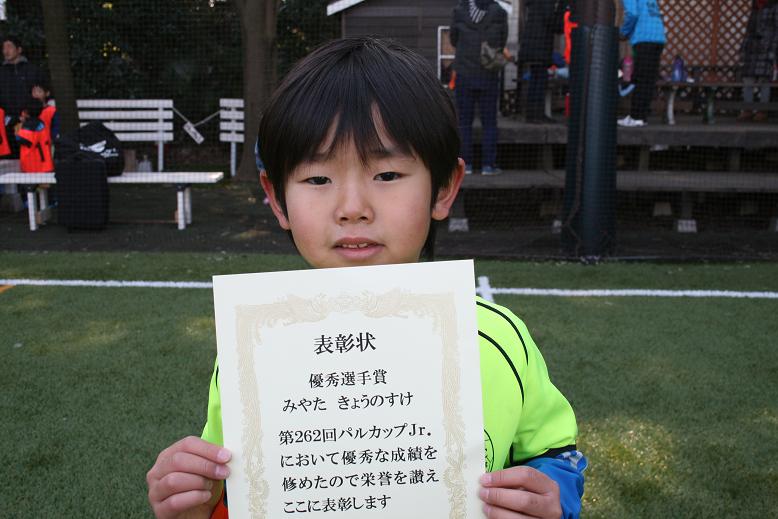 表彰状
優秀選手賞
みやた きょうのすけ
第262回パルカップJr.
において優秀な成績を
修めたので栄誉を讃え
ここに表彰します